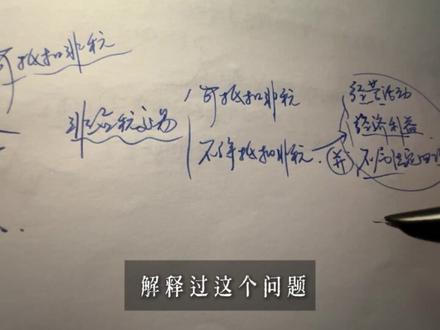 可抵扣非税
非应税交易
可抵扣非税
不得抵扣非税
并
经营活动
经济利益
不属法定四
解释过这个问题